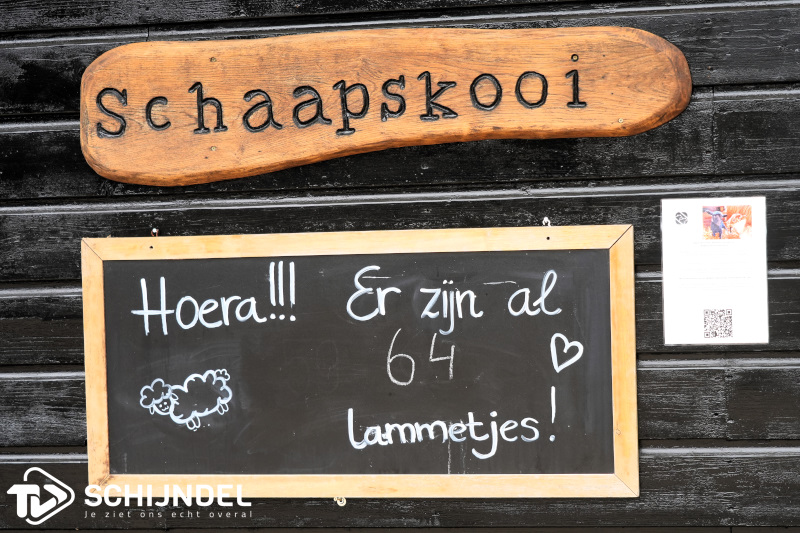 Schaapskooi
Hoera!!!
Er zijn al
64
lammetjes!
TV SCHIJNDEL
Je ziet ons echt overal